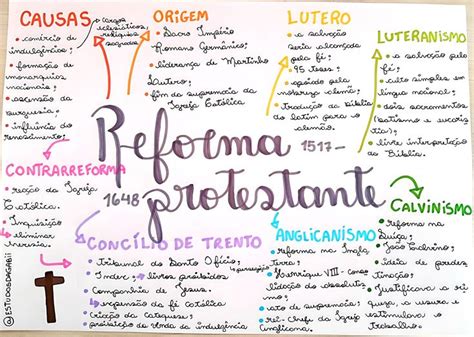 CAUSAS
cargos
eclesiásticos,
relíquias
sagradas
• comércio de
indulgências;
• formação de
monarquias
nacionais;
• ascensão da
burguesia;
• influência do
renascimento.
ORIGEM
• Sacro Império
Romano Germânico;
• liderança de Martinho
Lutero;
• fim da supremacia da
Igreja Católica
LUTERO
• a salvação
seria alcançada
pela fé;
• 95 teses;
• apoiado pela
nobreza alemã;
• tradução da Bíblia
do latim para o
alemão.
LUTERANISMO
• a salvação pela
fé;
• culto simples em
língua nacional;
• dois sacramentos
(batismo e eucaris
tia);
• livre interpretação
da Bíblia.
Reforma
protestante
1517-
1648
CONTRARREFORMA
• reação da Igreja
Católica.
• Inquisição
eliminar
heresia.
CONCÍLIO DE TRENTO
• tribunal do Santo Ofício;
• Index; livros proibidos
• Companhia de Jesus.
expansão da fé católica
• criação da catequese;
• proibição da venda da indulgência
ANGLICANISMO
• reforma na Ingla
terra;
• Henrique VIII - conso
lidação do absolutis
mo;
• ato de supremacia;
• rei - Chefe da Igreja
Anglicana.
CALVINISMO
• reforma na
Suíça;
• João Calvino;
• ideia de predes
tinação;
• Justificava a ri
queza, a usura e
estimulava o
trabalho.
@ESTUDOSDAGABII